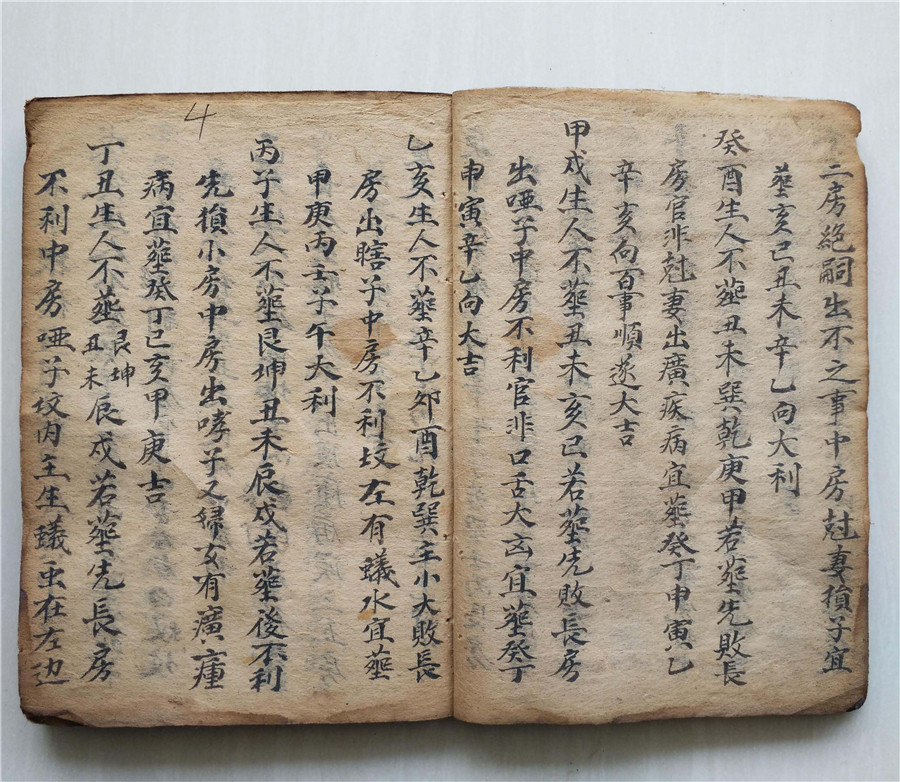 二房絶嗣出不之事中房尅妻損子宜
塟亥巳丑未辛乙向大利
癸酉生人不塟丑未巽乾庚甲若塟先敗長
房官非尅妻出癀疾病宜塟癸丁申寅乙
辛亥向百事順遂大吉
甲戍生人不塟丑未亥巳若塟先敗長房
出啞子中房不利官非口舌大凶宜塟癸丁
申寅辛乙向大吉
乙亥生人不塟辛乙卯酉乾巽主小大敗長
房出瞎子中房不利坟左有蟻水宜塟
甲庚丙壬子午大利
4
丙子生人不塟艮坤丑未辰戍若塟後不利
先損小房中房出哮子又婦女有癀瘇
病宜塟癸丁巳亥甲庚吉
丁丑生人不塟艮坤丑未辰戍若塟先長房
不利中房啞子坟内主生蟻虫在左边